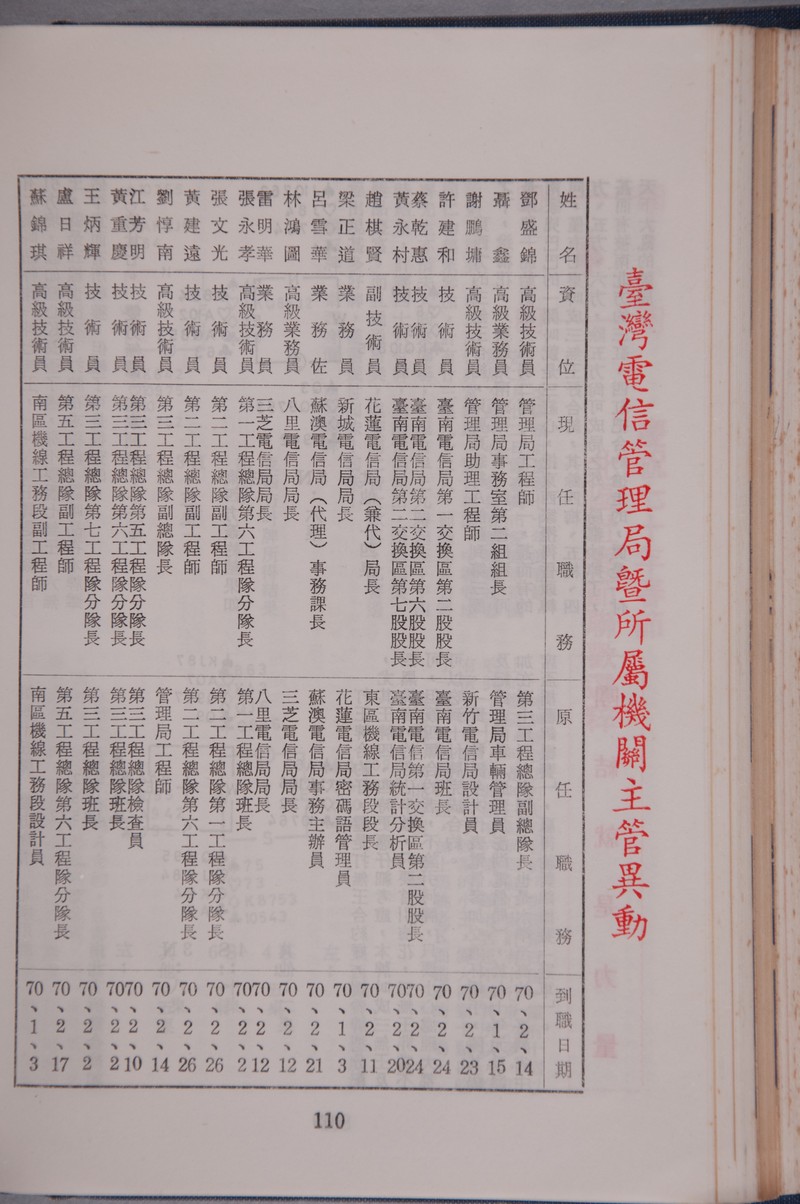 臺灣電信管理局暨所屬機關主管異動
姓名 資位 現任職務 原任職務 到職日期
鄧盛錦 高級技術員 管理局工程師 第三工程總隊副總隊長 70、2、14
聶鑫 高級業務員 管理局事務室第二組組長 管理局車輛管理員 70、1、15
謝鵬墉 高級技術員 管理局助理工程師 新竹電信局設計員 70、2、23
許建和 技術員 臺南電信局第一交換區第二股股長 臺南電信局班長 70、2、24
蔡乾惠 技術員 臺南電信局第二交換區第六股股長 臺南電信第一交換區第二股股長 70、2、24
黃永村 技術員 臺南電信局第二交換區第七股股長 臺南電信局統計分析員 70、2、20
趙棋賢 副技術員 花蓮電信局(兼代)局長 東區機線工務段段長 70、2、11
梁正道 業務員 新城電信局局長 花蓮電信局密碼語管理員 70、1、3
呂雪華 業務佐 蘇澳電信局(代理)事務課長 蘇澳電信局事務主辦員 70、2、21
林鴻圖 高級業務員 八里電信局局長 三芝電信局局長 70、2、12
雷明華 業務員 三芝電信局局長 八里電信局局長 70、2、12
張永孝 高級技術員 第一工程總隊第六工程隊分隊長 第一工程總隊班長 70、2、2
張文光 技術員 第二工程總隊副工程師 第二工程總隊第一工程隊分隊長 70、2、26
黃建遠 技術員 第二工程總隊副工程師 第二工程總隊第六工程隊分隊長 70、2、26
劉惇南 高級技術員 第三工程總隊副總隊長 管理局工程師 70、2、14
江芳明 技術員 第三工程總隊第五工程隊分隊長 第三工程總隊檢查員 70、2、10
黃重慶 技術員 第三工程總隊第六工程隊分隊長 第三工程總隊班長 70、2、2
王炳輝 技術員 第三工程總隊第七工程隊分隊長 第三工程總隊班長 70、2、2
盧日祥 高級技術員 第五工程總隊副工程師 第五工程總隊第六工程隊分隊長 70、2、17
蘇錦琪 高級技術員 南區機線工務段副工程師 南區機線工務段設計員 70、1、3
110